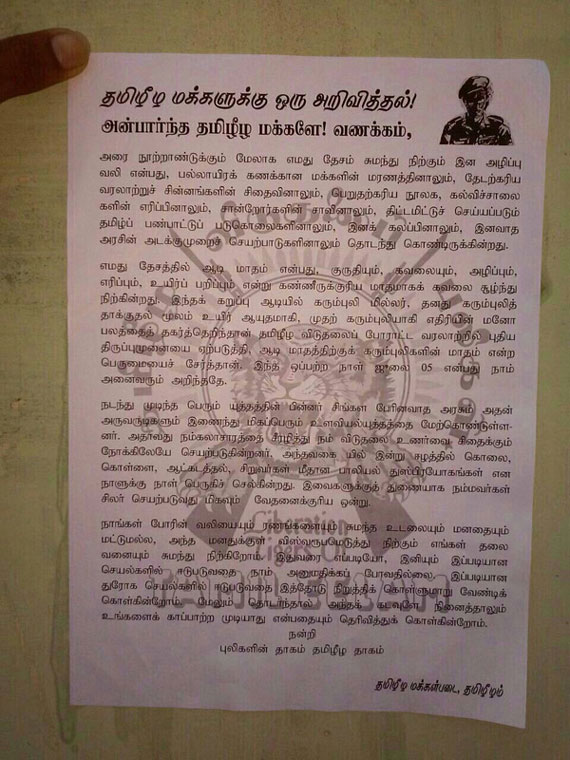 தமிழீழ மக்களுக்கு ஒரு அறிவித்தல்!
அன்பார்ந்த தமிழீழ மக்களே! வணக்கம்,
அரை நூற்றாண்டுக்கும் மேலாக எமது தேசம் சுமந்து நிற்கும் இன அழிப்பு
வலி என்பது, பல்லாயிரக் கணக்கான மக்களின் மரணத்தினாலும், தேடற்கரிய
வரலாற்றுச் சின்னங்களின் சிதைவினாலும், பெறுதற்கரிய நூலக, கல்விச்சாலை
களின் எரிப்பினாலும், சான்றோர்களின் சாவினாலும், திட்டமிட்டுச் செய்யப்படும்
தமிழ்ப் பண்பாட்டுப் படுகொலைகளினாலும், இனக் கலப்பினாலும், இனவாத
அரசின் அடக்குமுறைச் செயற்பாடுகளினாலும் தொடந்து கொண்டிருக்கின்றது.
எமது தேசத்தில் ஆடி மாதம் என்பது, குருதியும், கவலையும், அழிப்பும்,
எரிப்பும், உயிர்ப் பறிப்பும் என்ற கண்ணீருக்குரிய மாதமாகக் கவலை சூழ்ந்து
நிற்கின்றது. இந்தக் கறுப்பு ஆடியில் கரும்புலி மில்லர், தனது கரும்புலித்
தாக்குதல் மூலம் உயிர் ஆயுதமாகி, முதற் கரும்புலியாகி எதிரியின் மனோ
பலத்தைத் தகர்த்தெறிந்தான் தமிழீழ விடுதலைப் போராட்ட வரலாற்றில் புதிய
திருப்புமுனையை ஏற்படுத்தி, ஆடி மாதத்திற்குக் கரும்புலிகளின் மாதம் என்ற
பெருமையைச் சேர்த்தான். இந்த ஒப்பற்ற நாள் ஜுலை 05 என்பது நாம்
அனைவரும் அறிந்ததே.
நடந்து முடிந்த பெரும் யுத்தத்தின் பின்னர் சிங்கள பேரினவாத அரசும் அதன்
அருவருடிகளும் இணைந்து மிகப்பெரும் உளவியல்யுத்தத்தை மேற்கொண்டுள்ள
னர். அதாவது நம்கலாசாரத்தை அழித்து நம் விடுதலை உணர்வை சிதைக்கும்
நோக்கிலேயே செயற்படுகின்றனர். அந்தவகை யில் இன்று ஈழத்தில் கொலை,
கொள்ளை, ஆட்கடத்தல், சிறுவர்கள் மீதான பாலியல் துஸ்பிரயோகங்கள் என
நாளுக்கு நாள் பெருகிச் செல்கின்றது. இவைகளுக்குத் துணையாக நம்மவர்கள்
சிலர் செயற்படுவது மிகவும் வேதனைக்குரிய ஒன்று.
நாங்கள் போரின் வலியையும் ரணங்களையும் சுமந்த உடலையும் மனதையும்
மட்டுமல்ல, அந்த மனதுக்குள் விஸ்வரூபமெடுத்து நிற்கும் எங்கள் தலை
வனையும் சுமந்து நிற்கிறோம். இதுவரை எப்படியோ, இனியும் இப்படியான
செயல்களில் ஈடுபடுவதை நாம் அனுமதிக்கப் போவதில்லை. இப்படியான
துரோக செயல்களில் ஈடுபடுவதை இத்தோடு நிறுத்திக் கொள்ளுமாறு வேண்டிக்
கொள்கின்றோம். மேலும் தொடர்ந்தால் அந்தக் கடவுளே நினைத்தாலும்
உங்களைக் காப்பாற்ற முடியாது என்பதையும் தெரிவித்துக் கொள்கின்றோம்.
நன்றி
புலிகளின் தாகம் தமிழீழ தாகம்
தமிழீழ மக்கள்படை, தமிழீழம்
Liberation
Tigers Of
Tamil Eelam